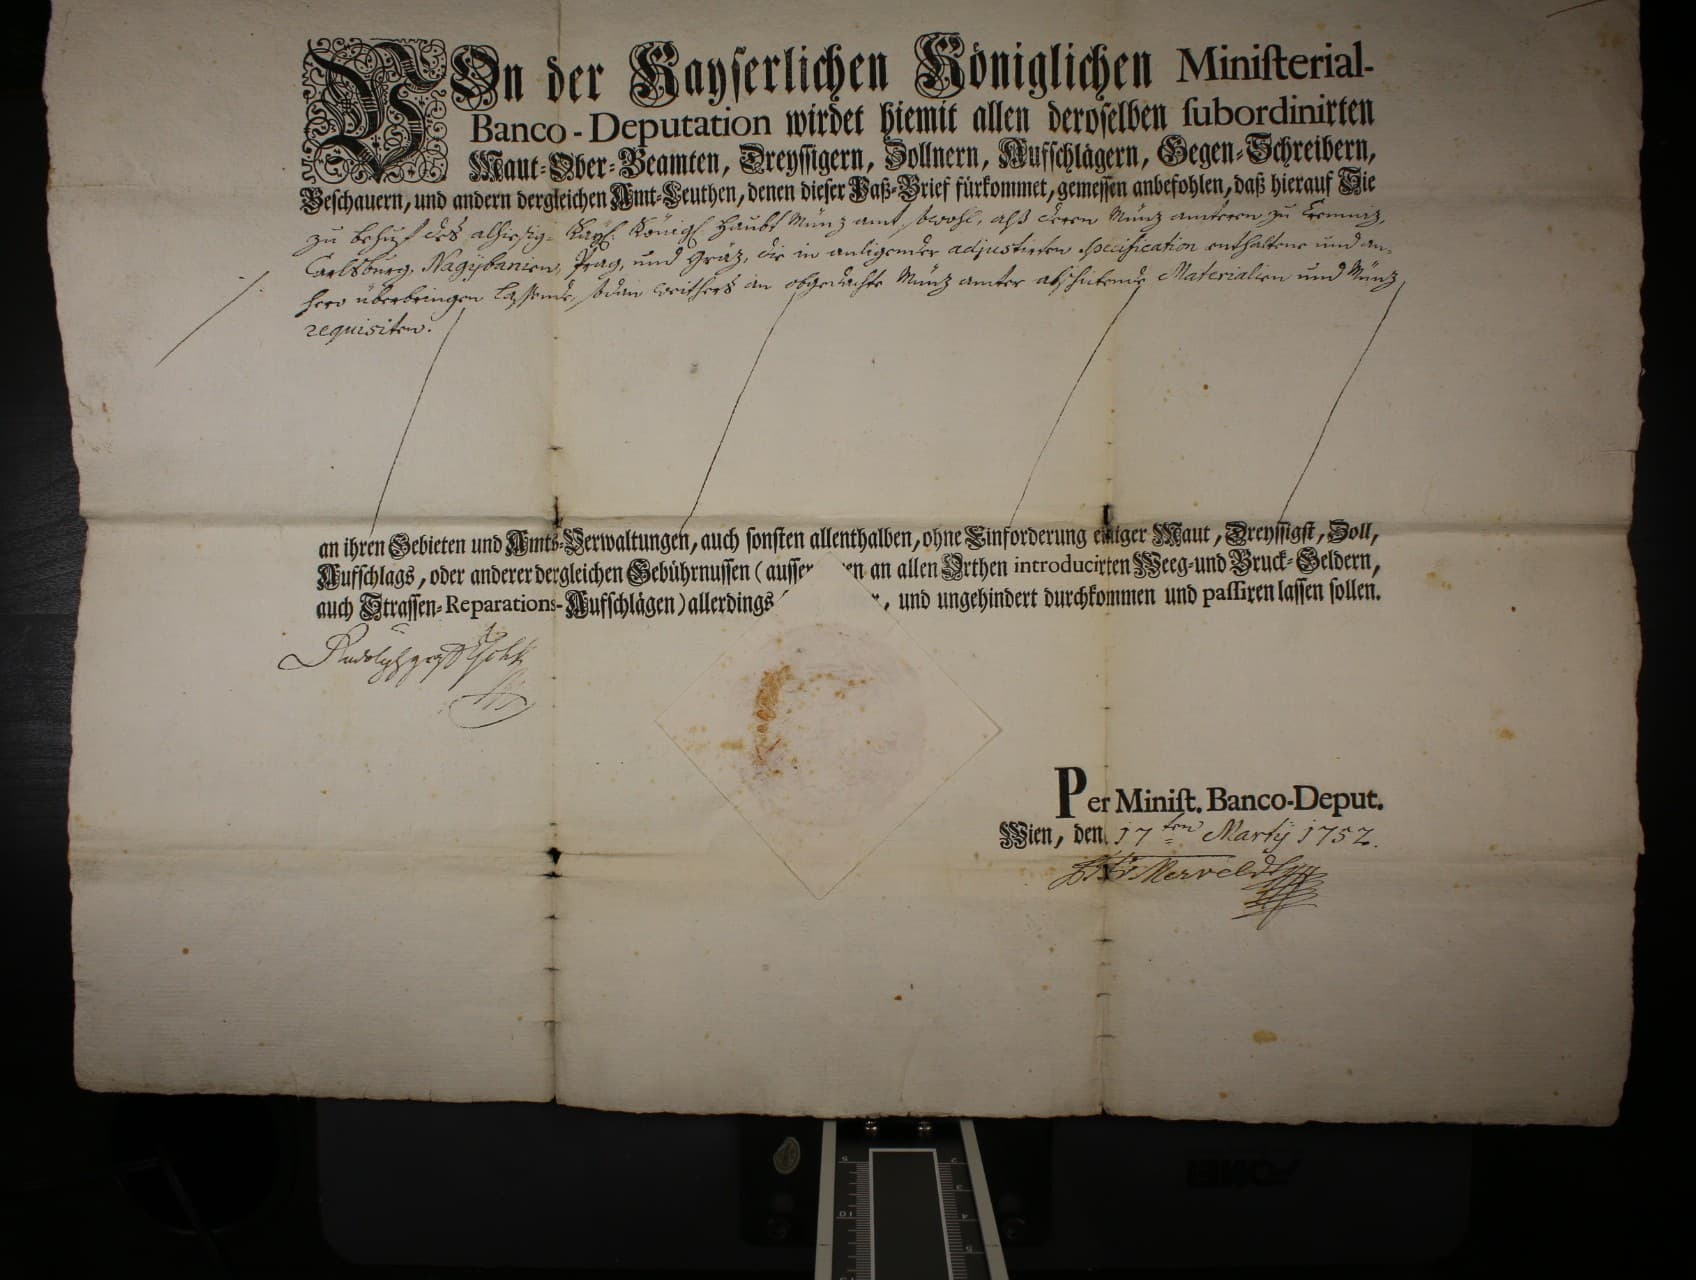 VOn der Kayserlichen Königlichen Ministerial-
Banco-Deputation wirdet hiemit allen deroselben subordinirten
Maut-Ober-Beamten, Dreyssigern, Zollnern, Aufschlägern, Gegen-Schreibern,
Beschauern, und andern dergleichen Amt-Leuthen, denen dieser Paß-Brief fürkommet, gemessen anbefohlen, daß hierauf Sie
zu behuf des alhiesig- Kayl: Königl: Haubt Münz amt, sowohl, alß deren Münz ämteren zu Cremniz,
Carlsburg, Nagybanien, Prag, und Gräz, die in anligender adjustirten specification enthaltene und an-
hero überbringen lassende, sodan weithers an obgedachte Münz ämter abschikende Materialien und Münz
requisiten.
an ihren Gebieten und Amts-Verwaltungen, auch sonsten allenthalben, ohne Einforderung einiger Maut, Dreyssigst, Zoll,
Aufschlags, oder anderer dergleichen Gebührnussen (ausser an allen Orthen introducirten Weeg-und Bruck-Geldern,
auch Strassen-Reparations-Aufschlägen) allerdings , und ungehindert durchkommen und passiren lassen sollen.
Rudolph
Per Minist. Banco-Deput.
Wien, den 17ten Martÿ 1752.
Merveldt